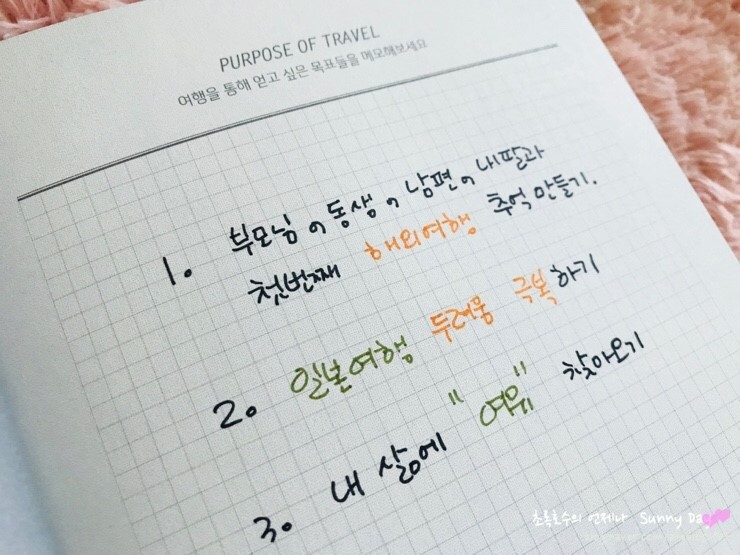 PURPOSE OF TRAVEL
여행을 통해 얻고 싶은 목표들을 메모해보세요
1. 부모님, 동생, 남편, 내딸과
첫번째 해외여행 추억 만들기.
2. 일본여행 두려움 극복하기
3. 내 삶에 "여유" 찾아오기
초록호수의 언제나 Sunny Day